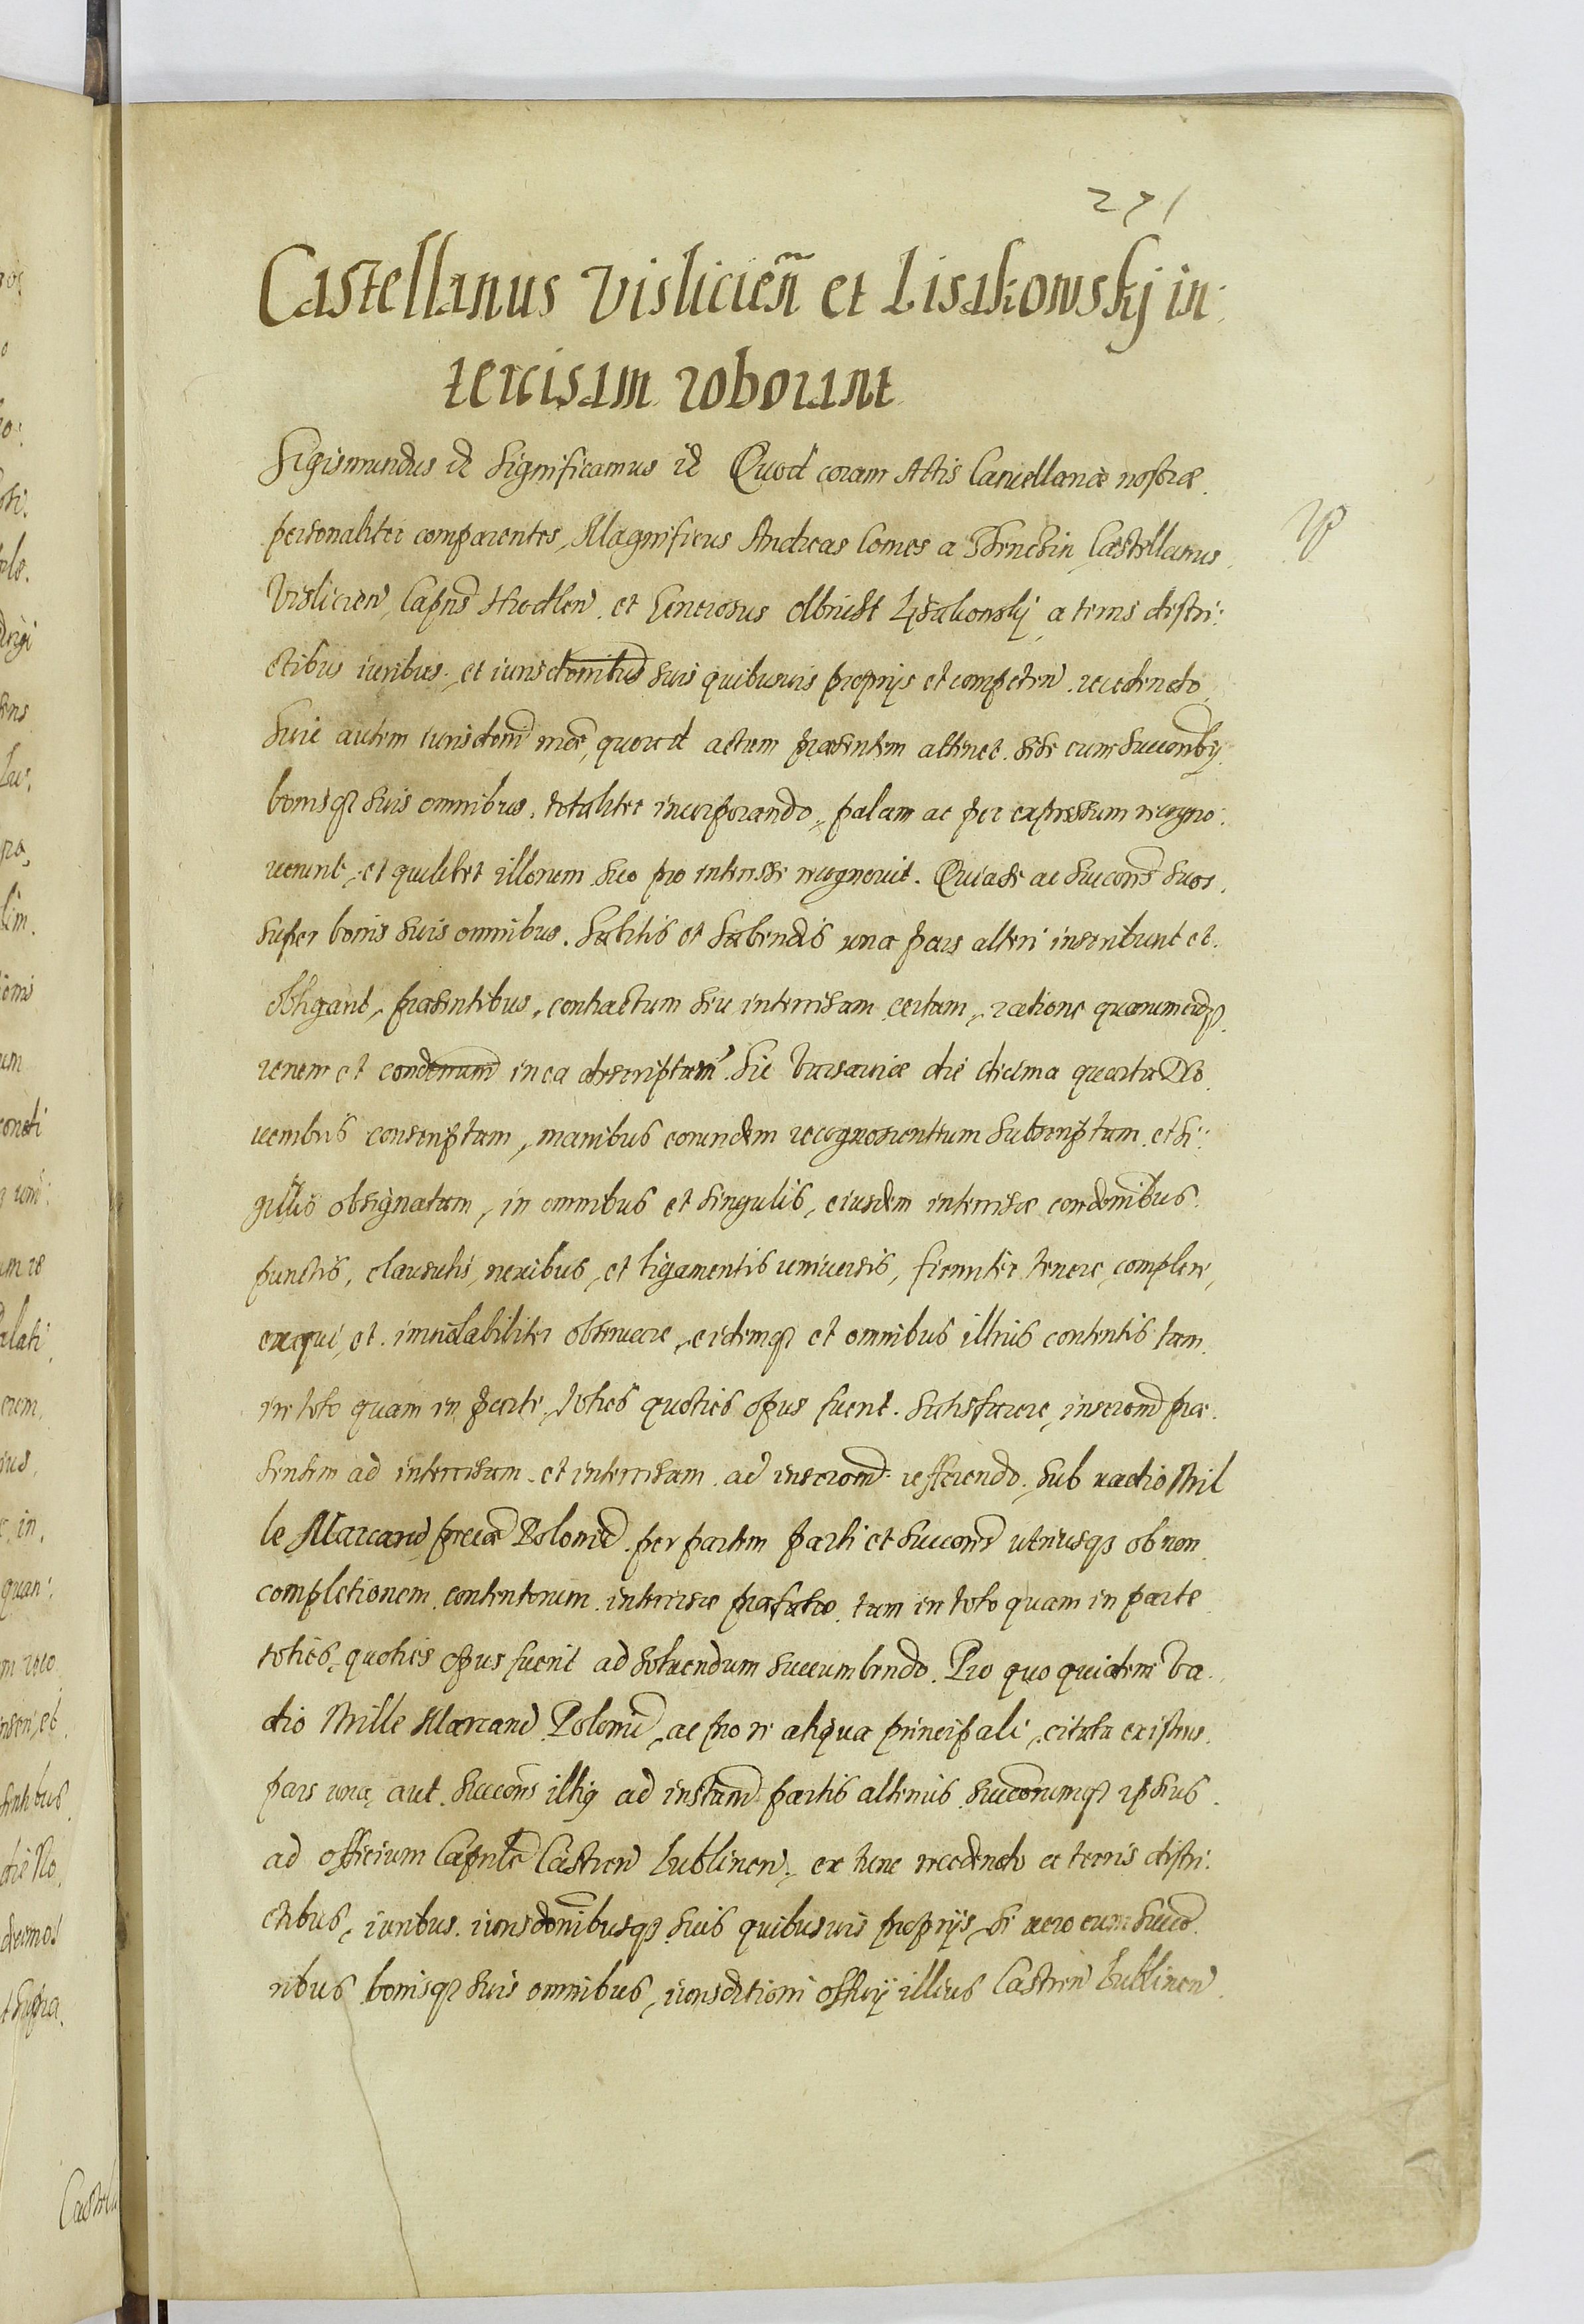 271
Castellanus Vislicieñ et Lisakowskj in:
tercisam roborant
Sigismundus etc Significamus etc Quod coram Actis Cancellariae nostrae
personaliter comparentes, Magnificus Andreas Comes a Thenchin Castellanus
Vislicien, Capns Hrodlen. et Generosus Olbricht Lysakowskj a terris distri:
ctibus iuribus, et iurisdtionibus suis quibusvis proprijs et competen. recedendo
huic autem iurisdtioni quoad actum praesentem attinet. sese cum succorib9
bonisq3 suis omnibus. totaliter incorporando, palam ac per expressum recogno:
verunt, et quilibet illorum suo pro interesse recognovit. Quia se ac succors suos,
super bonis suis omnibus. habitis et habendis una pars alteri inscribunt et
obligant, praesentibus, contractum seu intercisam certam, ratione
rerum et condonum in ea descriptarum hic Varsaviae die decima quarta No
vembris conscriptam, manibus eorundem recognoscentium subscriptam et si:
gillis obsignatam, in omnibus et singulis, eiusdem intercisae condonibus
punctis, clausulis, nexibus, et ligamentis universis, firmiter tenere, complere,
exequi, et inviolabiliter observare, eidemq3 et omnibus illius contentis tam
in toto quam in parte, toties quoties opus fuerit. satisfacere, inscronem prae
sentem ad intercisam et intercisam ad inscronem refferendo. sub vadio Mil
le Marcarum pecae Polonic. per partem parti et succors utriusq3 ob non
completionem contentorum intercisae praefatae tam in toto quam in parte
toties, quoties opus fuerit ad solvendum succumbendo. Pro quo quidem va
dio Mille Marcarum Polonic, ac pro re aliqua principali, citata existens
pars una aut succors illi9 ad instam partis alterius succorumq3 ipsius
ad officium Capnle Castren Lublinen, ex tunc recedendo a terris distri:
ctibus, iuribus iurisdonibusq3 suis quibusvis proprijs, se vero cum succo
ribus bonisq3 suis omnibus, iurisditioni officij illius Castren Lublinen